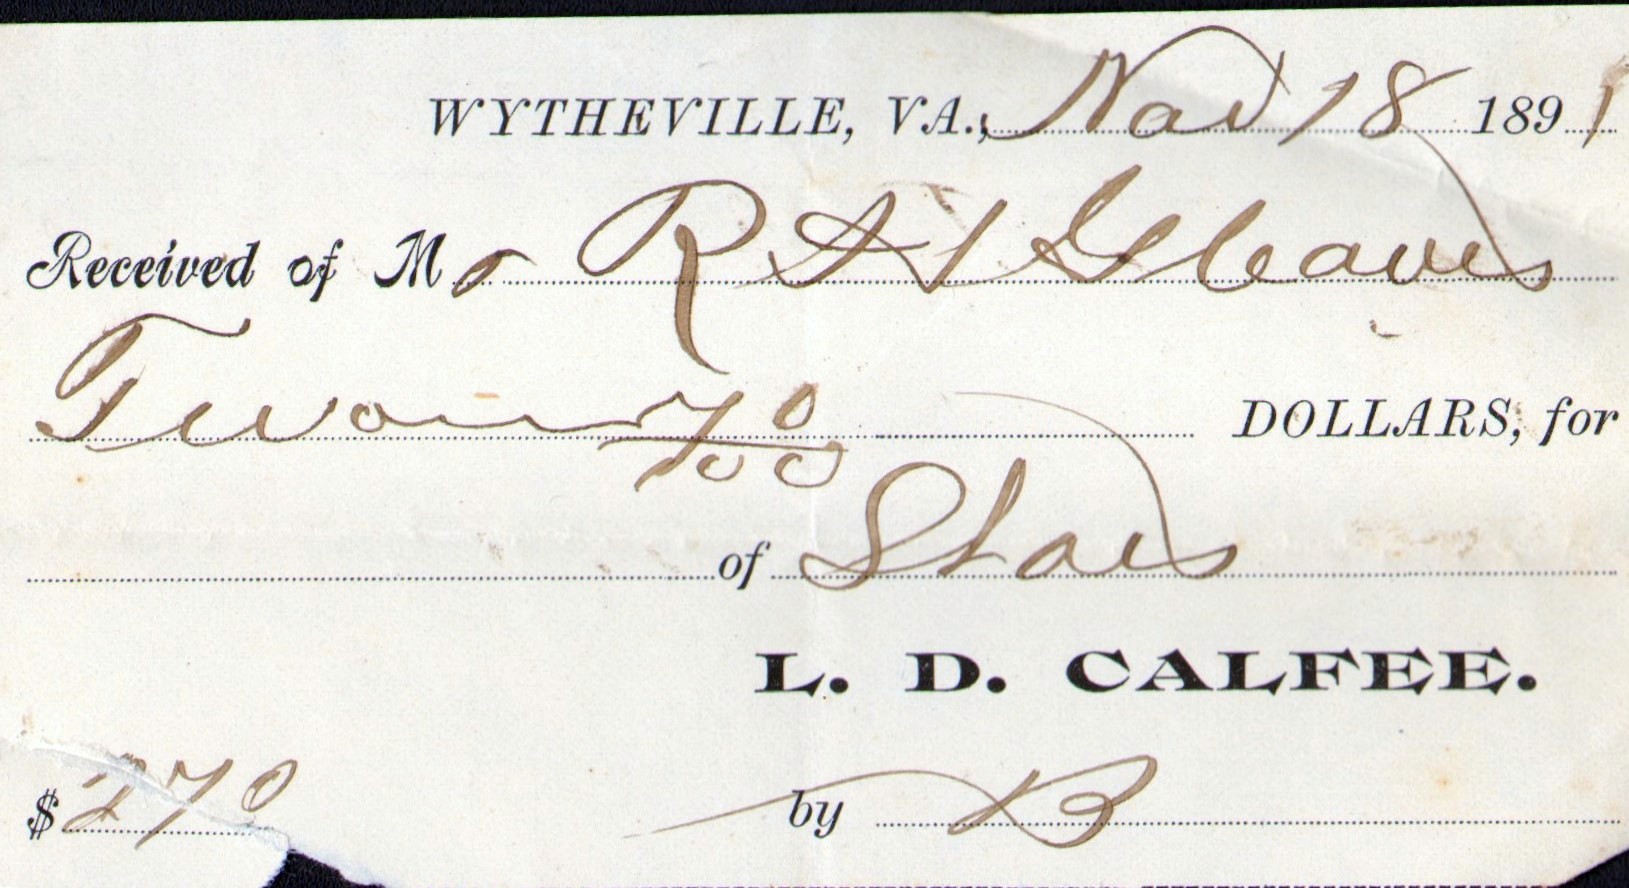 WYTHEVILLE, VA., Nov 18 1891
Received of Mr R A J Gleaves
Two 70/100 DOLLARS, for
of
L. D. CALFEE.
$ 2 70 by B